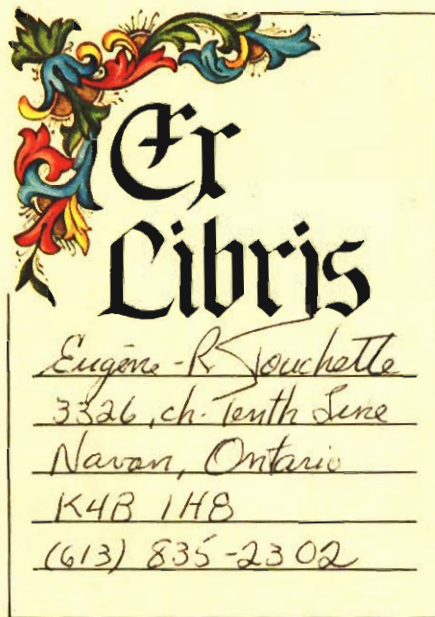 Ex
Libris
Eugène-R Touchette
3326, ch. Tenth Line
Navan, Ontario
K4B 1H8
(613) 835-2302